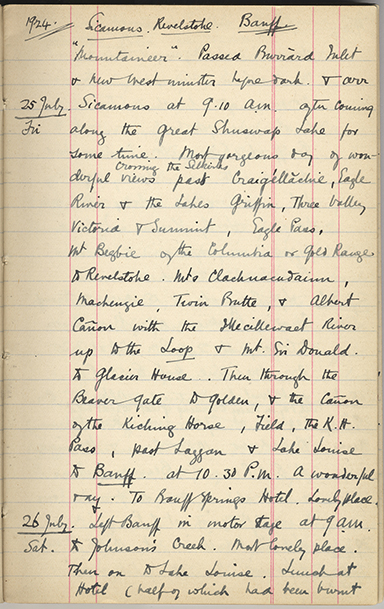 1924. Sicamous. Revelstoke. Banff.
"Mountaineer". Passed Burrard Inlet
& New Westminster before dark. & arr
25 July. Sicamous at 9.10 a.m. after coming
Fri along the great Shuswap Lake for
some time. Most gorgeous day of won-
Crossing the Selkirks
derful views past Craigellachie, Eagle
River & the Lakes Griffin, Three Valley
Victoria & Summit, Eagle Pass,
Mt Begbie of the Columbia or Gold Range
to Revelstoke. Mts Clachnacudainn,
Mackenzie, Twin Butte, & Albert
Cañon with the Illecillewaet River
up to the Loop & Mt. Sir Donald.
to Glacier House. Then through the
Beaver Gate to Golden, & the Cañon
of the Kicking Horse, Field, the K.H.
Pass, past Laggan & Lake Louise
to Banff. at 10.30 P.M. A wonderful
day. To Banff Springs Hotel. Lovely place.
26 July. Left Banff in motor stage at 9 a.m.
Sat. to Johnson's Creek. Most lovely place.
Then on to Lake Louise. Lunch at
Hotel (half of which had been burnt